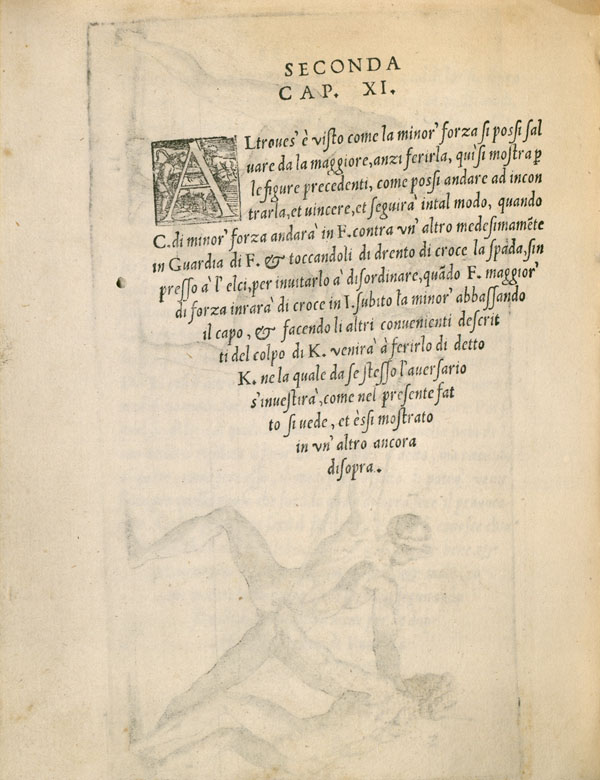 SECONDA
CAP. XI.
ALtroues' è visto come la minor' forza si possi sal
uare da la maggiore, anzi ferirla, qui si mostra p̲
le figure precedenti, come possi andare ad incon
trarla, et uincere, et seguirà intal modo, quando
C. di minor' forza andarà in F. contra vn' altro medesimamẽte
in Guardia di F. & toccandoli di drento di croce la spada, sin
presso à l' elci, per inuitarlo à disordinare, quãdo F. maggior'
di forza inrarà di croce in I. subito la minor' abbassando
il capo, & facendo li altri conuenienti descrit
ti del colpo di K. venirà à ferirlo di detto
K. ne la quale da se stesso l'auersario
s'inuestirà, come nel presente fat
to si uede, et èssi mostrato
in vn' altro ancora
disopra.